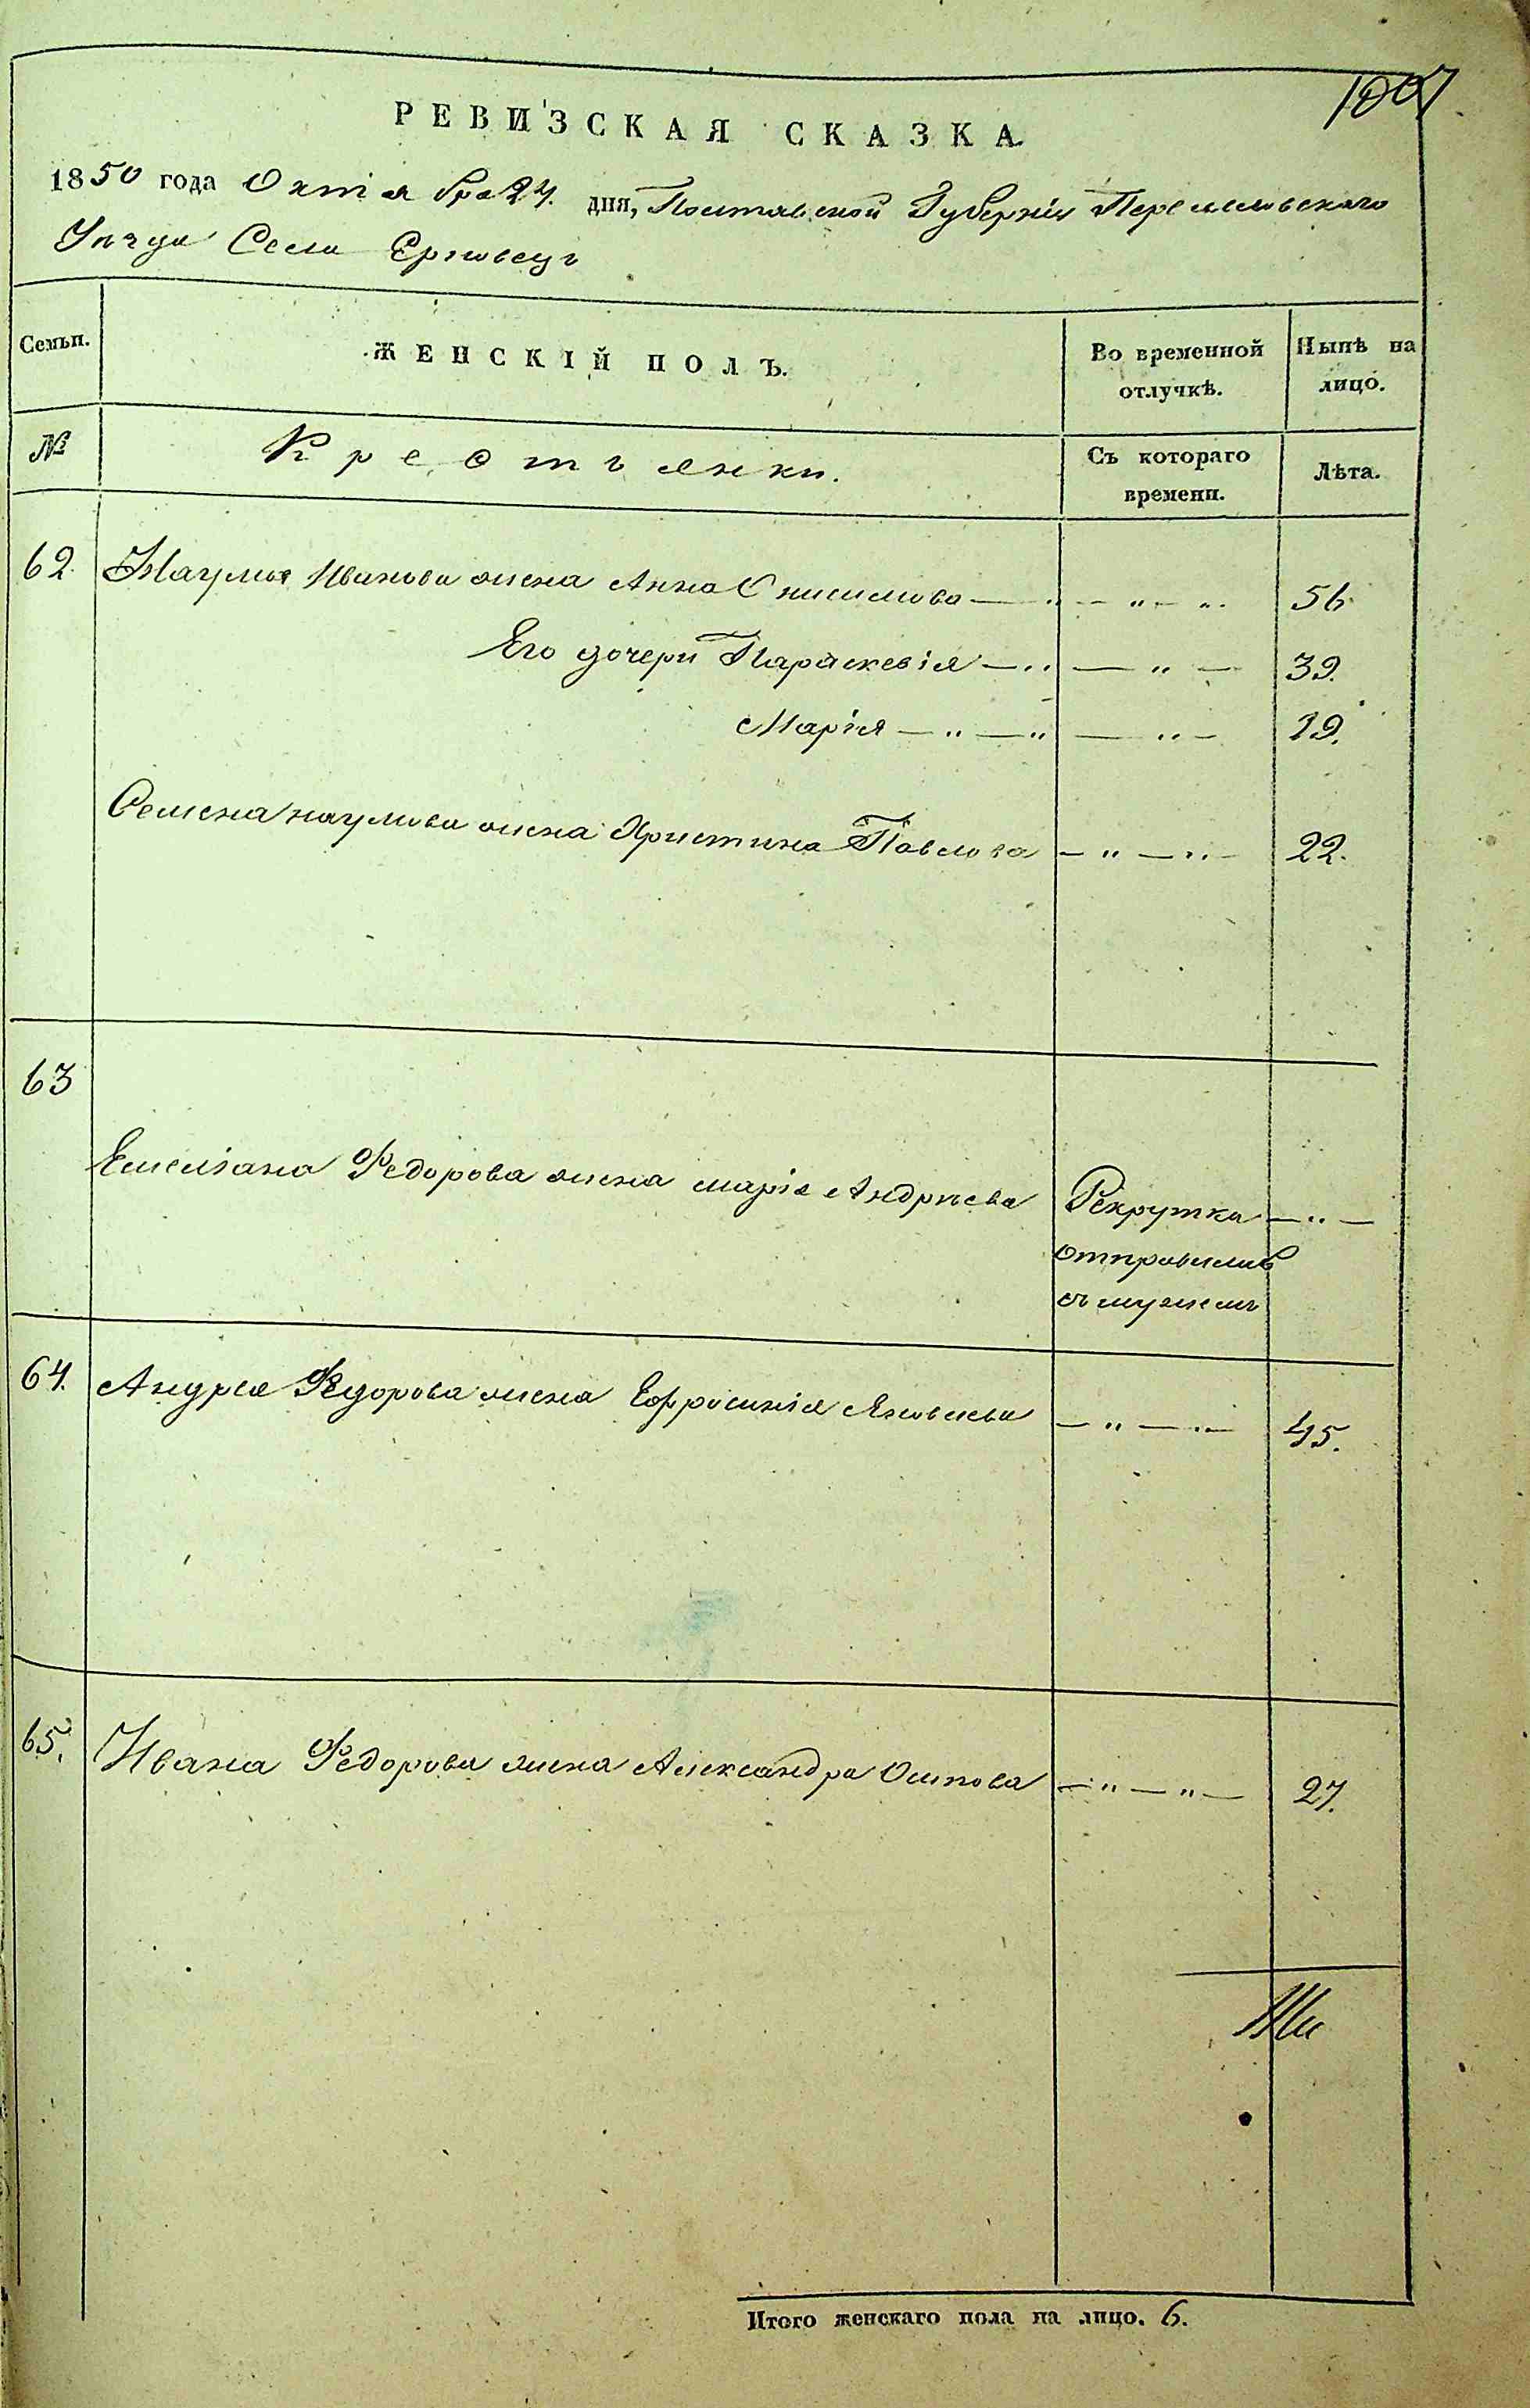 1007
РЕВИЗСКАЯ СКАЗКА
1850 года Октября 24. дня, Полтавской Губерніи Переяславскаго
Уѣзда Села Ерковецъ
Семьи. ЖЕНСКІЙ ПОЛЪ. Во временной отлучкѣ. Нынѣ на лицо.
№ Крестьянки. Съ котораго времени. Лѣта.
62. Наума Иванова жена Анна Онисимова — " — " 56.
Его дочери Параскевія — " — " — 39.
Марія — " — " — " — 19.
Семена Наумова жена Христина Павлова — " — " — 22.
63
Емеліана Федорова жена марія Андрѣева Рекрутка — " —
отправилась
съ мужемъ
64. Андрея Федорова жена Ефросинія Яковлева — " — " — 45.
65. Ивана Федорова жена Александра Осипова — " — " — 27.
Итого женскаго пола на лицо. 6.